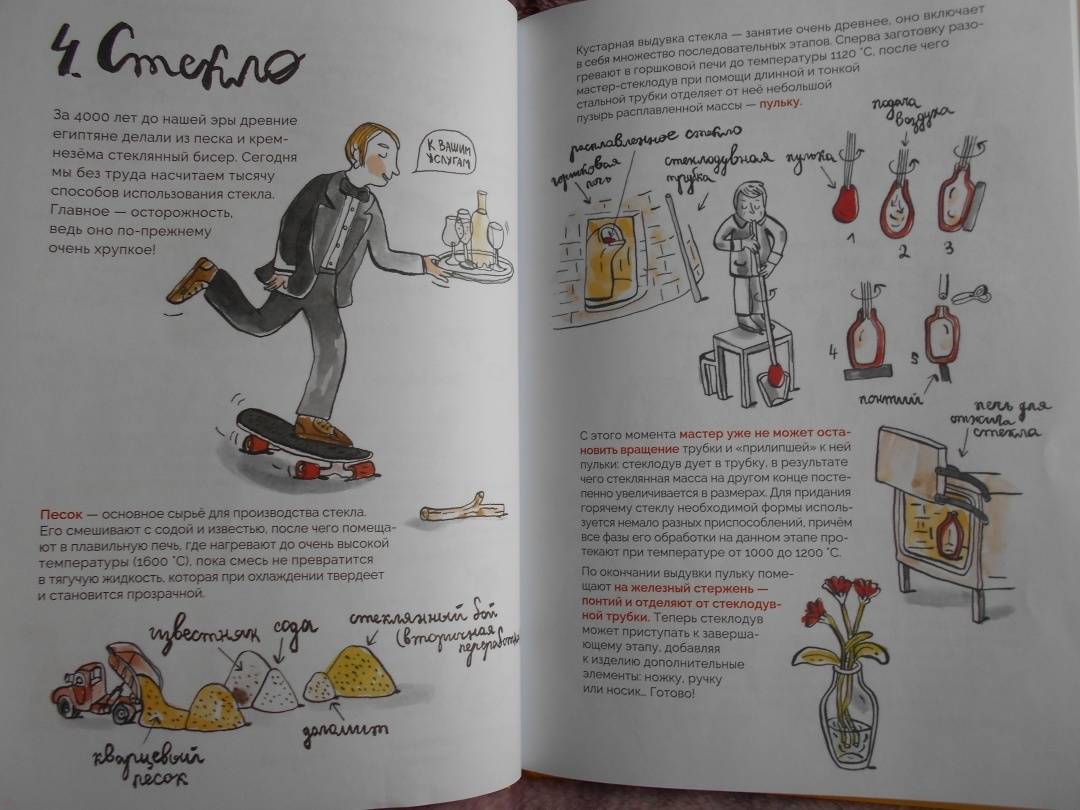 4. Стекло
За 4000 лет до нашей эры древние
египтяне делали из песка и крем-
незёма стеклянный бисер. Сегодня
мы без труда насчитаем тысячу
способов использования стекла.
Главное — осторожность,
ведь оно по-прежнему
очень хрупкое!
К ВАШИМ
УСЛУГАМ
Песок — основное сырьё для производства стекла.
Его смешивают с содой и известью, после чего помеща-
ют в плавильную печь, где нагревают до очень высокой
температуры (1600 °C), пока смесь не превратится
в тягучую жидкость, которая при охлаждении твердеет
и становится прозрачной.
известняк
сода
стеклянный бой
(вторичная
переработка
доломит
кварцевый
песок
Кустарная выдувка стекла — занятие очень древнее, оно включает
в себя множество последовательных этапов. Сперва заготовку разо-
гревают в горшковой печи до температуры 1120 °C, после чего
мастер-стеклодув при помощи длинной и тонкой
стальной трубки отделяет от неё небольшой
пузырь расплавленной массы — пульку.
расплавленное стекло
горшковая
печь
стеклодувная
трубка
пулька
подача
воздуха
1
2
3
4
5
понтий
печь для
отжига
стекла
С этого момента мастер уже не может оста-
новить вращение трубки и «прилипшей» к ней
пульки: стеклодув дует в трубку, в результате
чего стеклянная масса на другом конце посте-
пенно увеличивается в размерах. Для придания
горячему стеклу необходимой формы исполь-
зуется немало разных приспособлений, причём
все фазы его обработки на данном этапе про-
текают при температуре от 1000 до 1200 °C.
По окончании выдувки пульку поме-
щают на железный стержень —
понтий и отделяют от стеклодув-
ной трубки. Теперь стеклодув
может приступать к заверша-
ющему этапу, добавляя
к изделию дополнительные
элементы: ножку, ручку
или носик... Готово!